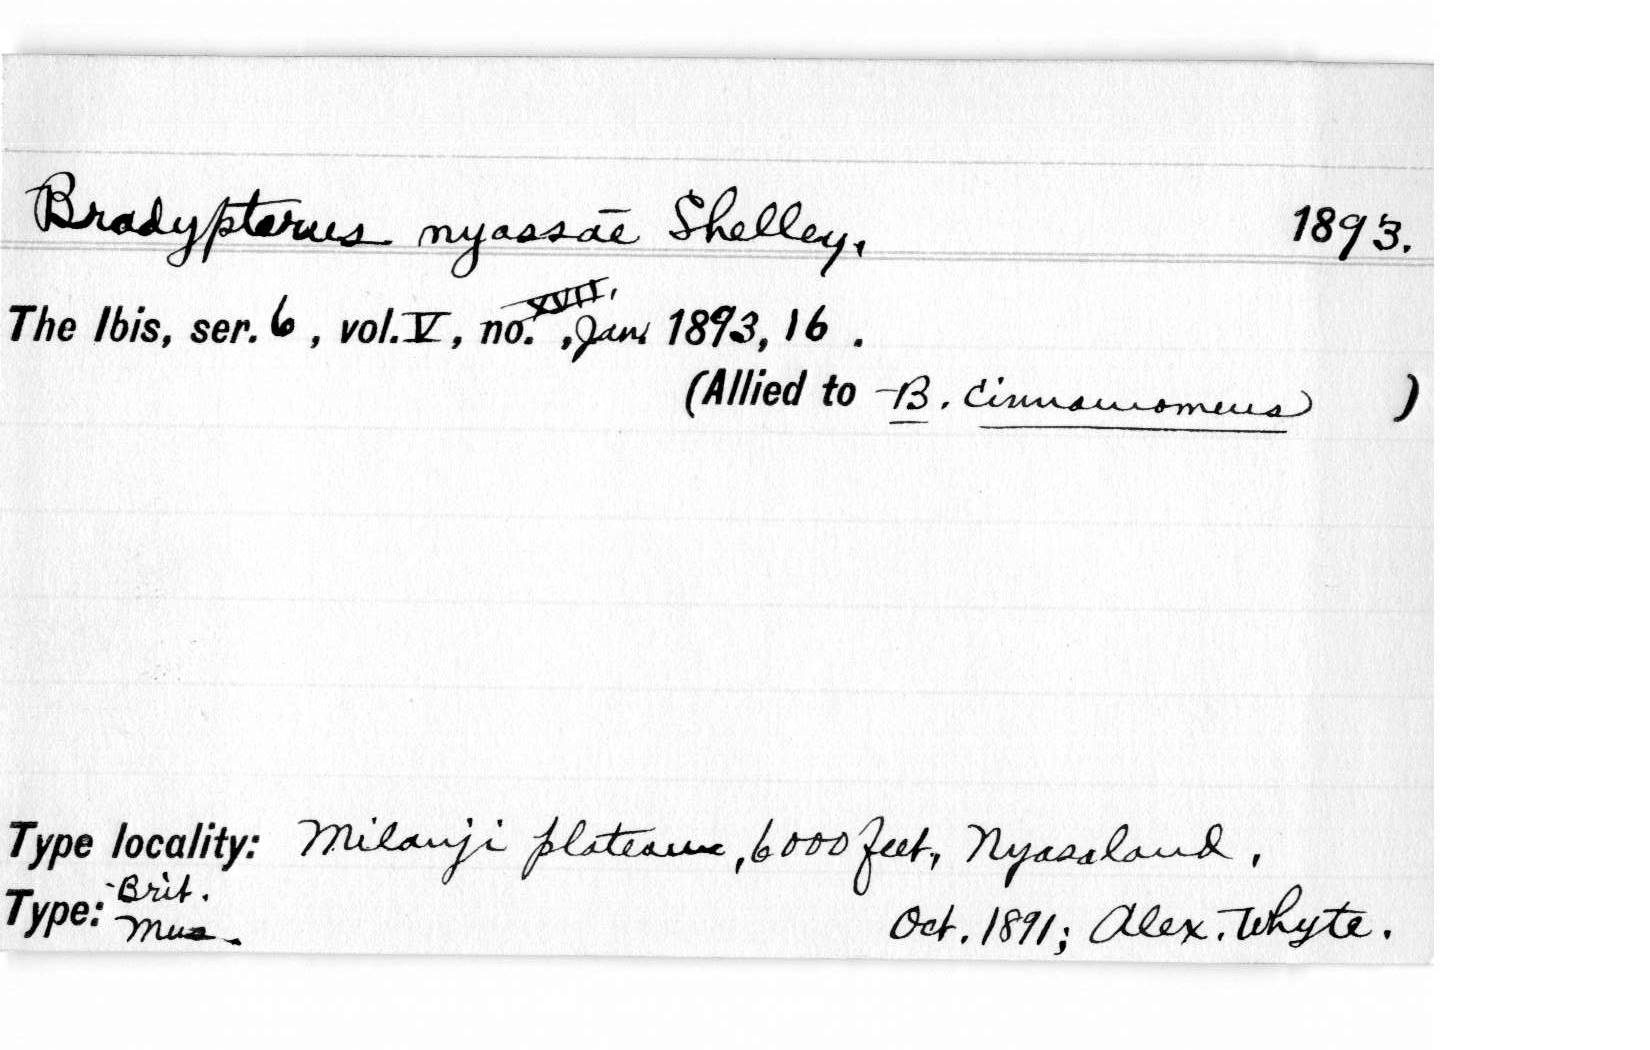 Bradypterus nyassae Shelley, 1893.
The Ibis, ser. 6, vol. V, no. XVII, Jan. 1893, 16.
(Allied to B. cinnamomeus)
Type locality: Milanji plateau, 6000 feet, Nyasaland,
Type: Brit. Mus. Oct. 1891; Alex. Whyte.